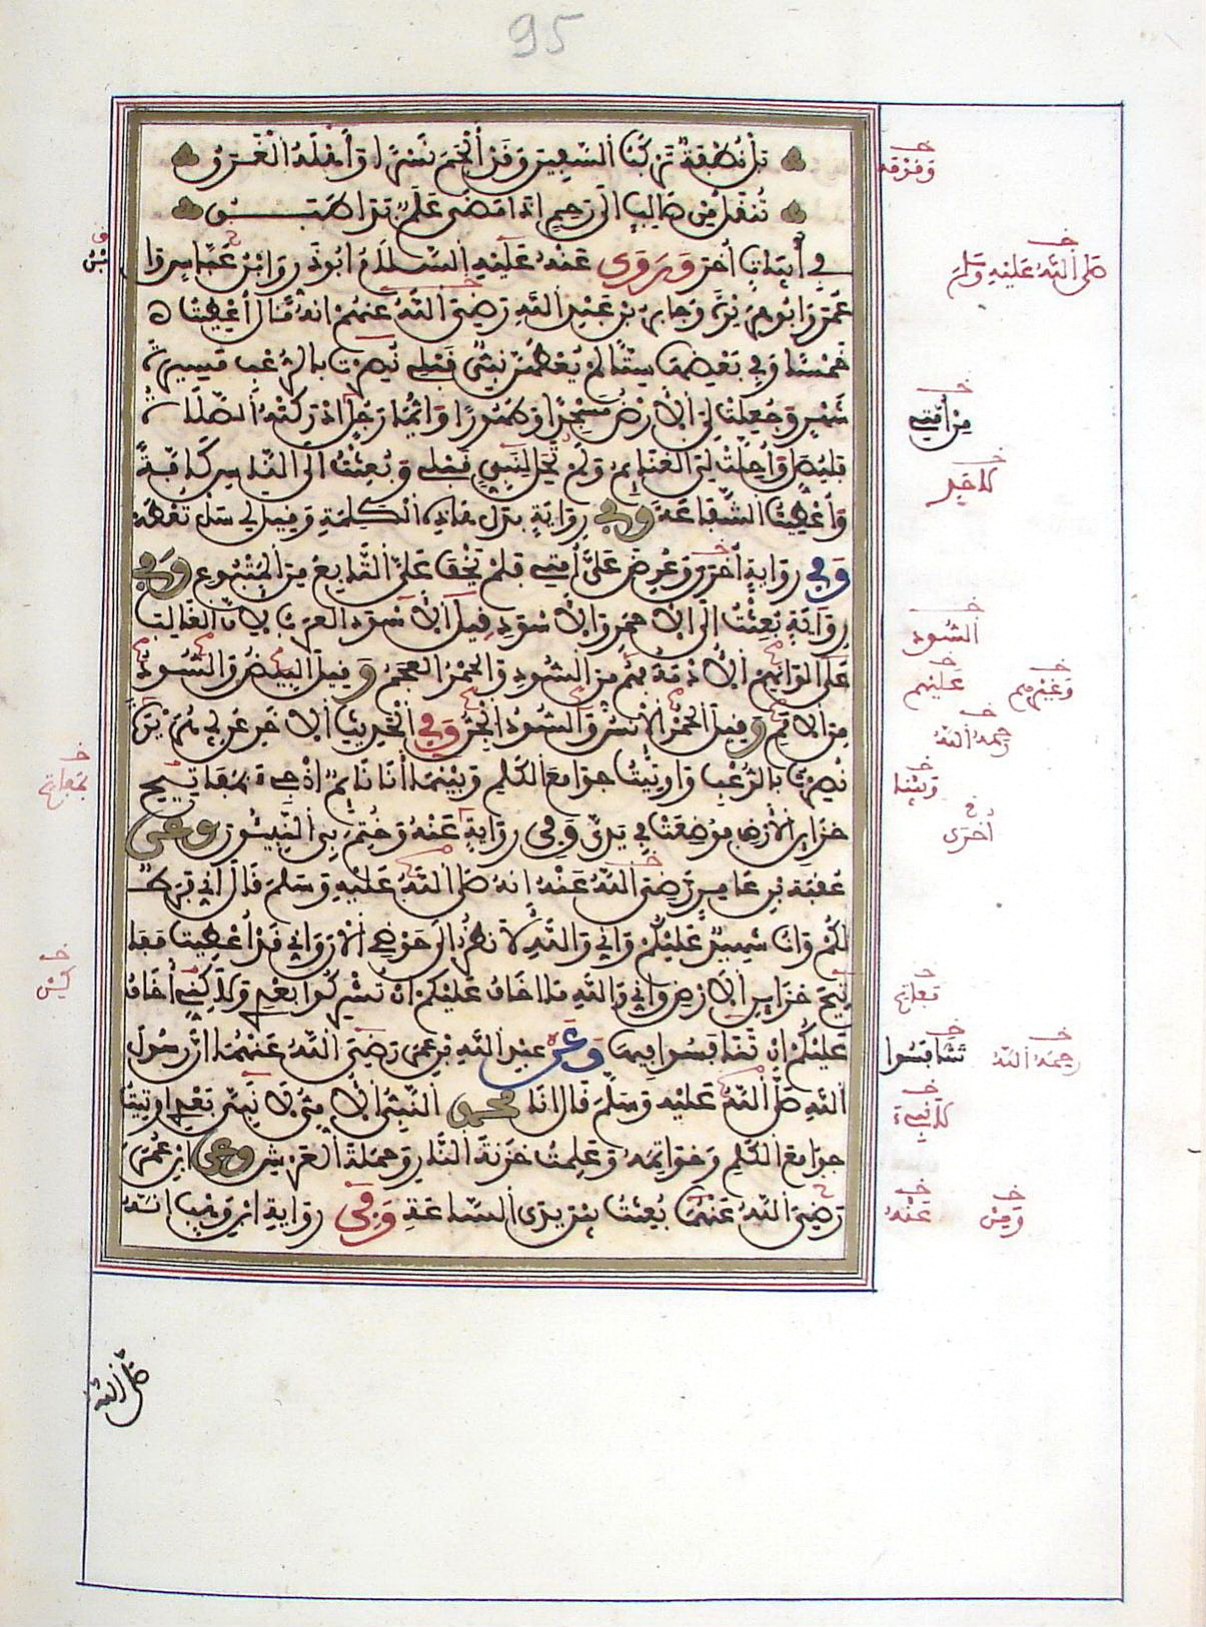 95
بل نطفة تركب السفين وقد ألجم نسرا وأهله الغرق
تنقل من صالب الى رحم اذا مضى علم بدا طبق
في أبيات أخر وروى عنه عليه السلام ابو ذر وابن عباس وا
عمر وابو هريرة وجابر بن عبد الله رضي الله عنهم انه قال أعطيت
خمسا وفي بعضها ستا لم يعطهن نبي قبلي نصرت بالرعب مسيرة
شهر وجعلت لي الأرض مسجدا وطهورا وأيما رجل ادركته الصلاة
فليصل وأحلت لي الغنايم ولم تحل لنبي قبلي وبعثت الى الناس كافة
وأعطيت الشفاعة وفي رواية بدل هاذه الكلمة وقيل لي سل تعطه
وفي رواية أخرى وعرض علي أمتي فلم يخف علي التابع من المتبوع وفي
رواية بعثت إلى الاحمر والاسود قيل الأسود العرب لأن الغالب
على ألوانهم الأدمة فهم من السود والحمر العجم وقيل البيض والسود
من الامم وقيل الحمر الانس والسود الجن وفي الحديث الاخر عن ابي هريرة
نصرت بالرعب واوتيت جوامع الكلم وبينما أنا نايم اذ جيء بمفاتيح
خزاين الأرض فوضعت في يدي وفي رواية عنه وختم بي النبيئون وعن
عقبة بن عامر رضي الله عنه انه صلى الله عليه وسلم قال اني فرط
لكم وانا شهيد عليكم واني والله لأنظر الى حوضي الآن واني قد أعطيت مفا
تيح خزاين الأرض واني والله ما اخاف عليكم ان تشركوا بعدي ولكني أخاف
عليكم ان تنافسوا فيها وعن عبد الله بن عمر رضي الله عنهما ان رسول
الله صلى الله عليه وسلم قال انا محمد النبي الأمي لا نبي بعدي اوتيت
جوامع الكلم وخواتمه وعلمت خزنة النار وحملة العرش وعن ابن عمر
رضي الله عنهما بعثت بين يدي الساعة وفي رواية ابن وهب انه
صلى الله عليه وسلم
من أمتي
السود
عليهم
وغيرهم
رحمه الله
وبينا
أخرى
رحمه الله
عنه
ومن
صلى الله